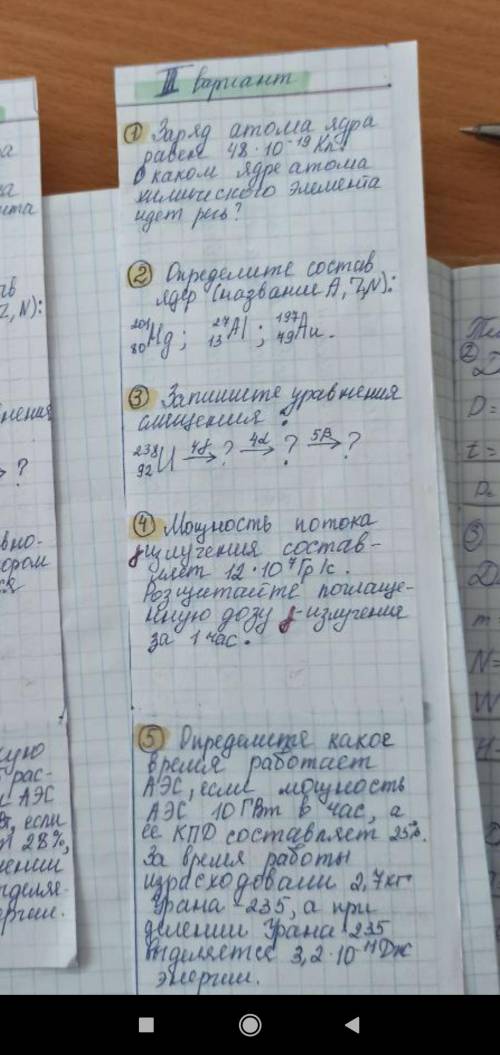 III вариант
① Заряд атома ядра
равен 48·10⁻¹⁹ Кл.
О каком ядре атома
химического элемента
идет речь?
② Определите состав
ядер (название A, Z, N):
²⁰¹₈₀Hg; ²⁷₁₃Al; ¹⁹⁷₇₉Au.
③ Запишите уравнения
смещения:
²³⁸₉₂U 4γ→ ? 4α→ ? 5β→ ?
④ Мощность потока
γ излучения состав-
ляет 12·10⁷ Гр/с.
Розщитайте поглаще-
нную дозу γ-излучения
за 1 час.
⑤ Определите какое
время работает
АЭС, если мощность
АЭС 10 ГВт в час, а
ее КПД составляет 25%.
За время работы
израсходовали 2,7 кг
Урана -235, а при
делении Урана 235
отделяется 3,2·10⁻¹¹ Дж
энергии.
Z, N):
→ ?
АЭС
если
28%,
D =
t =
m =
N =
W